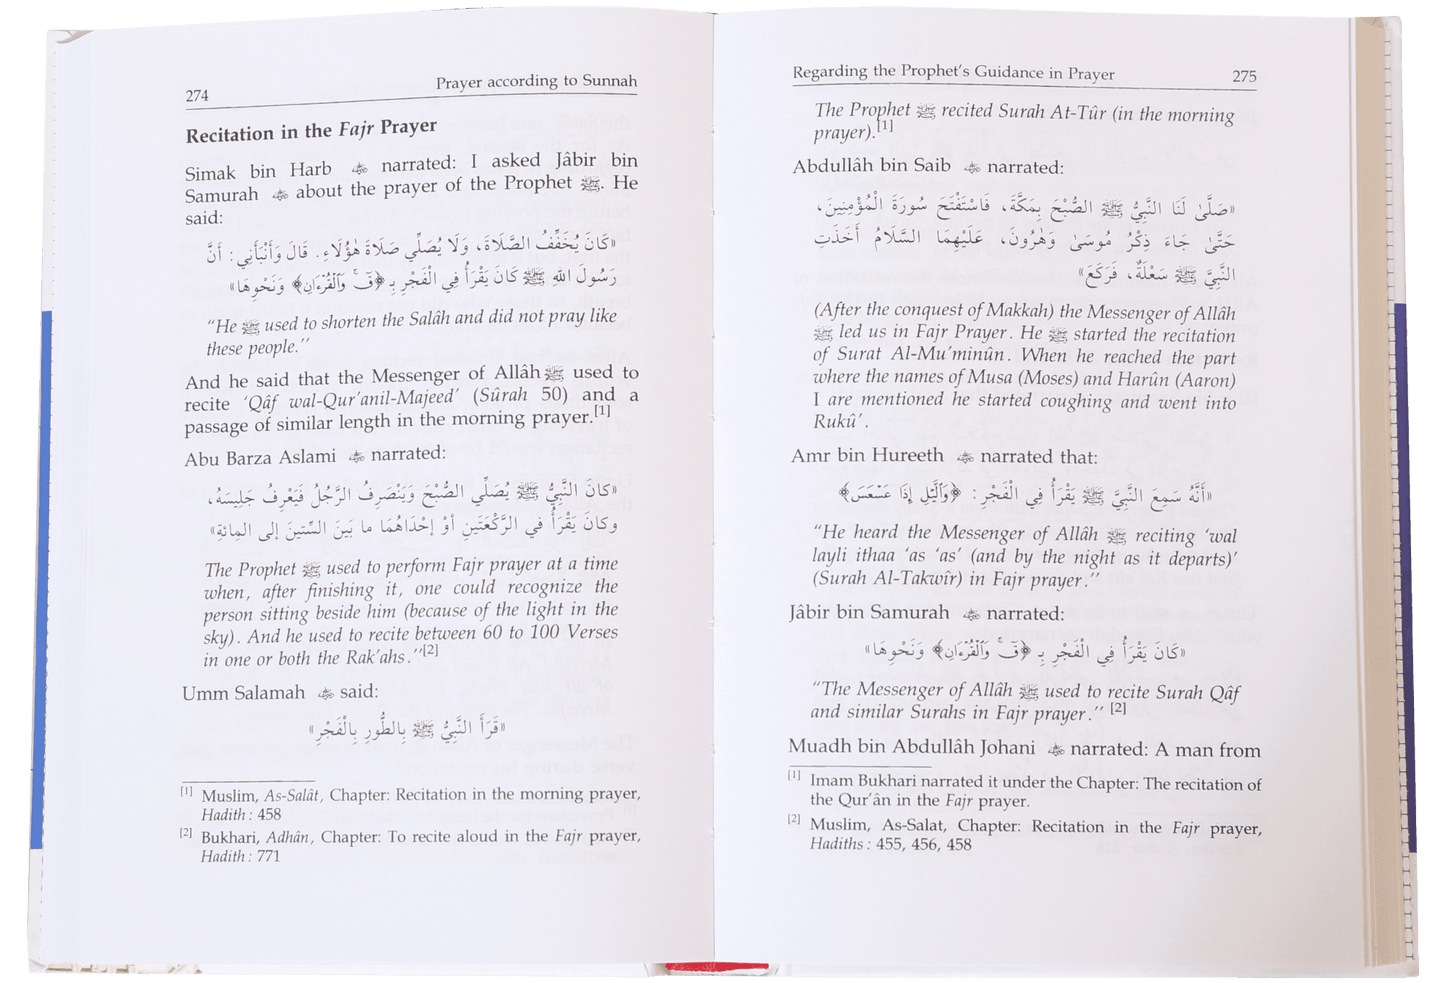 274 Prayer according to Sunnah
Recitation in the Fajr Prayer
Simak bin Harb narrated: I asked Jâbir bin
Samurah about the prayer of the Prophet ﷺ. He
said:
«كَانَ يُخَفِّفُ الصَّلَاةَ، وَلَا يُصَلِّي صَلَاةَ هٰؤُلَاءِ. قَالَ وَأَنْبَأَنِي: أَنَّ
رَسُولَ اللهِ ﷺ كَانَ يَقْرَأُ فِي الْفَجْرِ بِـ ﴿قٓ ۚ وَالْقُرْءَانِ﴾ وَنَحْوِهَا»
“He ﷺ used to shorten the Salâh and did not pray like
these people.’’
And he said that the Messenger of Allâh ﷺ used to
recite ‘Qâf wal-Qur’anil-Majeed’ (Sûrah 50) and a
passage of similar length in the morning prayer.[1]
Abu Barza Aslami narrated:
«كَانَ النَّبِيُّ ﷺ يُصَلِّي الصُّبْحَ وَيَنْصَرِفُ الرَّجُلُ فَيَعْرِفُ جَلِيسَهُ،
وكَانَ يَقْرَأُ في الرَّكْعَتَينِ أوْ إحْدَاهُمَا ما بَيَن السِّتينَ إلى المائةِ»
The Prophet ﷺ used to perform Fajr prayer at a time
when, after finishing it, one could recognize the
person sitting beside him (because of the light in the
sky). And he used to recite between 60 to 100 Verses
in one or both the Rak’ahs.’’[2]
Umm Salamah said:
«قَرَأَ النَّبِيُّ ﷺ بِالطُّورِ بِالْفَجْرِ»
[1] Muslim, As-Salât, Chapter: Recitation in the morning prayer,
Hadith : 458
[2] Bukhari, Adhân, Chapter: To recite aloud in the Fajr prayer,
Hadith : 771
Regarding the Prophet’s Guidance in Prayer 275
The Prophet ﷺ recited Surah At-Tûr (in the morning
prayer).[1]
Abdullâh bin Saib narrated:
«صَلَّىٰ لَنَا النَّبِيُّ ﷺ الصُّبْحَ بِمَكَّةَ، فَاسْتَفْتَحَ سُورَةَ الْمُؤْمِنِينَ،
حَتَّىٰ جَاءَ ذِكْرُ مُوسَىٰ وَهٰرُونَ، عَلَيْهِمَا السَّلَامُ أَخَذَتِ
النَّبِيَّ ﷺ سَعْلَةٌ، فَرَكَعَ»
(After the conquest of Makkah) the Messenger of Allâh
ﷺ led us in Fajr Prayer. He ﷺ started the recitation
of Surat Al-Mu’minûn. When he reached the part
where the names of Musa (Moses) and Harûn (Aaron)
I are mentioned he started coughing and went into
Rukû’.
Amr bin Hureeth narrated that:
«أَنَّهُ سَمِعَ النَّبِيَّ ﷺ يَقْرَأُ فِي الْفَجْرِ: ﴿وَالَّيْلِ إِذَا عَسْعَسَ﴾
“He heard the Messenger of Allâh ﷺ reciting ‘wal
layli ithaa ‘as ‘as’ (and by the night as it departs)’
(Surah Al-Takwîr) in Fajr prayer.’’
Jâbir bin Samurah narrated:
«كَانَ يَقْرَأُ فِي الْفَجْرِ بِـ ﴿قٓ ۚ وَالْقُرْءَانِ﴾ وَنَحْوِهَا»
“The Messenger of Allâh ﷺ used to recite Surah Qâf
and similar Surahs in Fajr prayer.’’ [2]
Muadh bin Abdullâh Johani narrated: A man from
[1] Imam Bukhari narrated it under the Chapter: The recitation of
the Qur’ân in the Fajr prayer.
[2] Muslim, As-Salat, Chapter: Recitation in the Fajr prayer,
Hadiths : 455, 456, 458